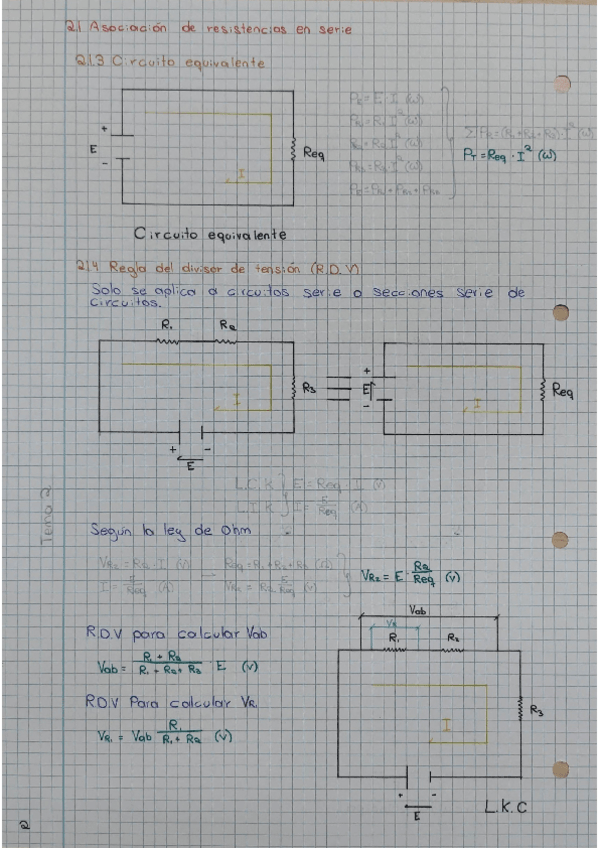 2.1 Asociación de resistencias en serie
2.1.3 Circuito equivalente
+
E
-
Req
I
PE = E · I (W)
PR1 = R1 · I² (W)
PR2 = R2 · I² (W)
PR3 = R3 · I² (W)
PE = PR1 + PR2 + PR3
ΣPR = (R1 + R2 + R3) · I² (W)
PT = Req · I² (W)
Circuito equivalente
2.1.4 Regla del divisor de tensión (R.D.V)
Solo se aplica a circuitos serie o secciones serie de
circuitos.
R1 R2
R3
I
+ -
E
+
E
-
I
Req
E = Req · I (V)
I = E/Req (A)
Según la ley de Ohm
VR2 = R2 · I (V)
I = E/Req (A)
Req = R1 + R2 + R3 (Ω)
VR2 = E · R2/Req (V)
R.D.V para calcular Vab
Vab = R1 + R2 / R1 + R2 + R3 · E (V)
R.D.V Para calcular VR1
VR1 = Vab R1 / R1 + R2 (V)
Vab
R1 R2
R3
I
+ -
E
L.K.C
Tema 2
2